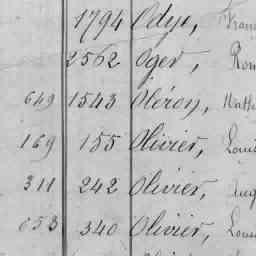 1794 Odye,
2562 Oger, Rom
649 1543 Oléron, Math
169 155 Olivier, Loui
311 242 Olivier, Aug
653 340 Olivier, Loui